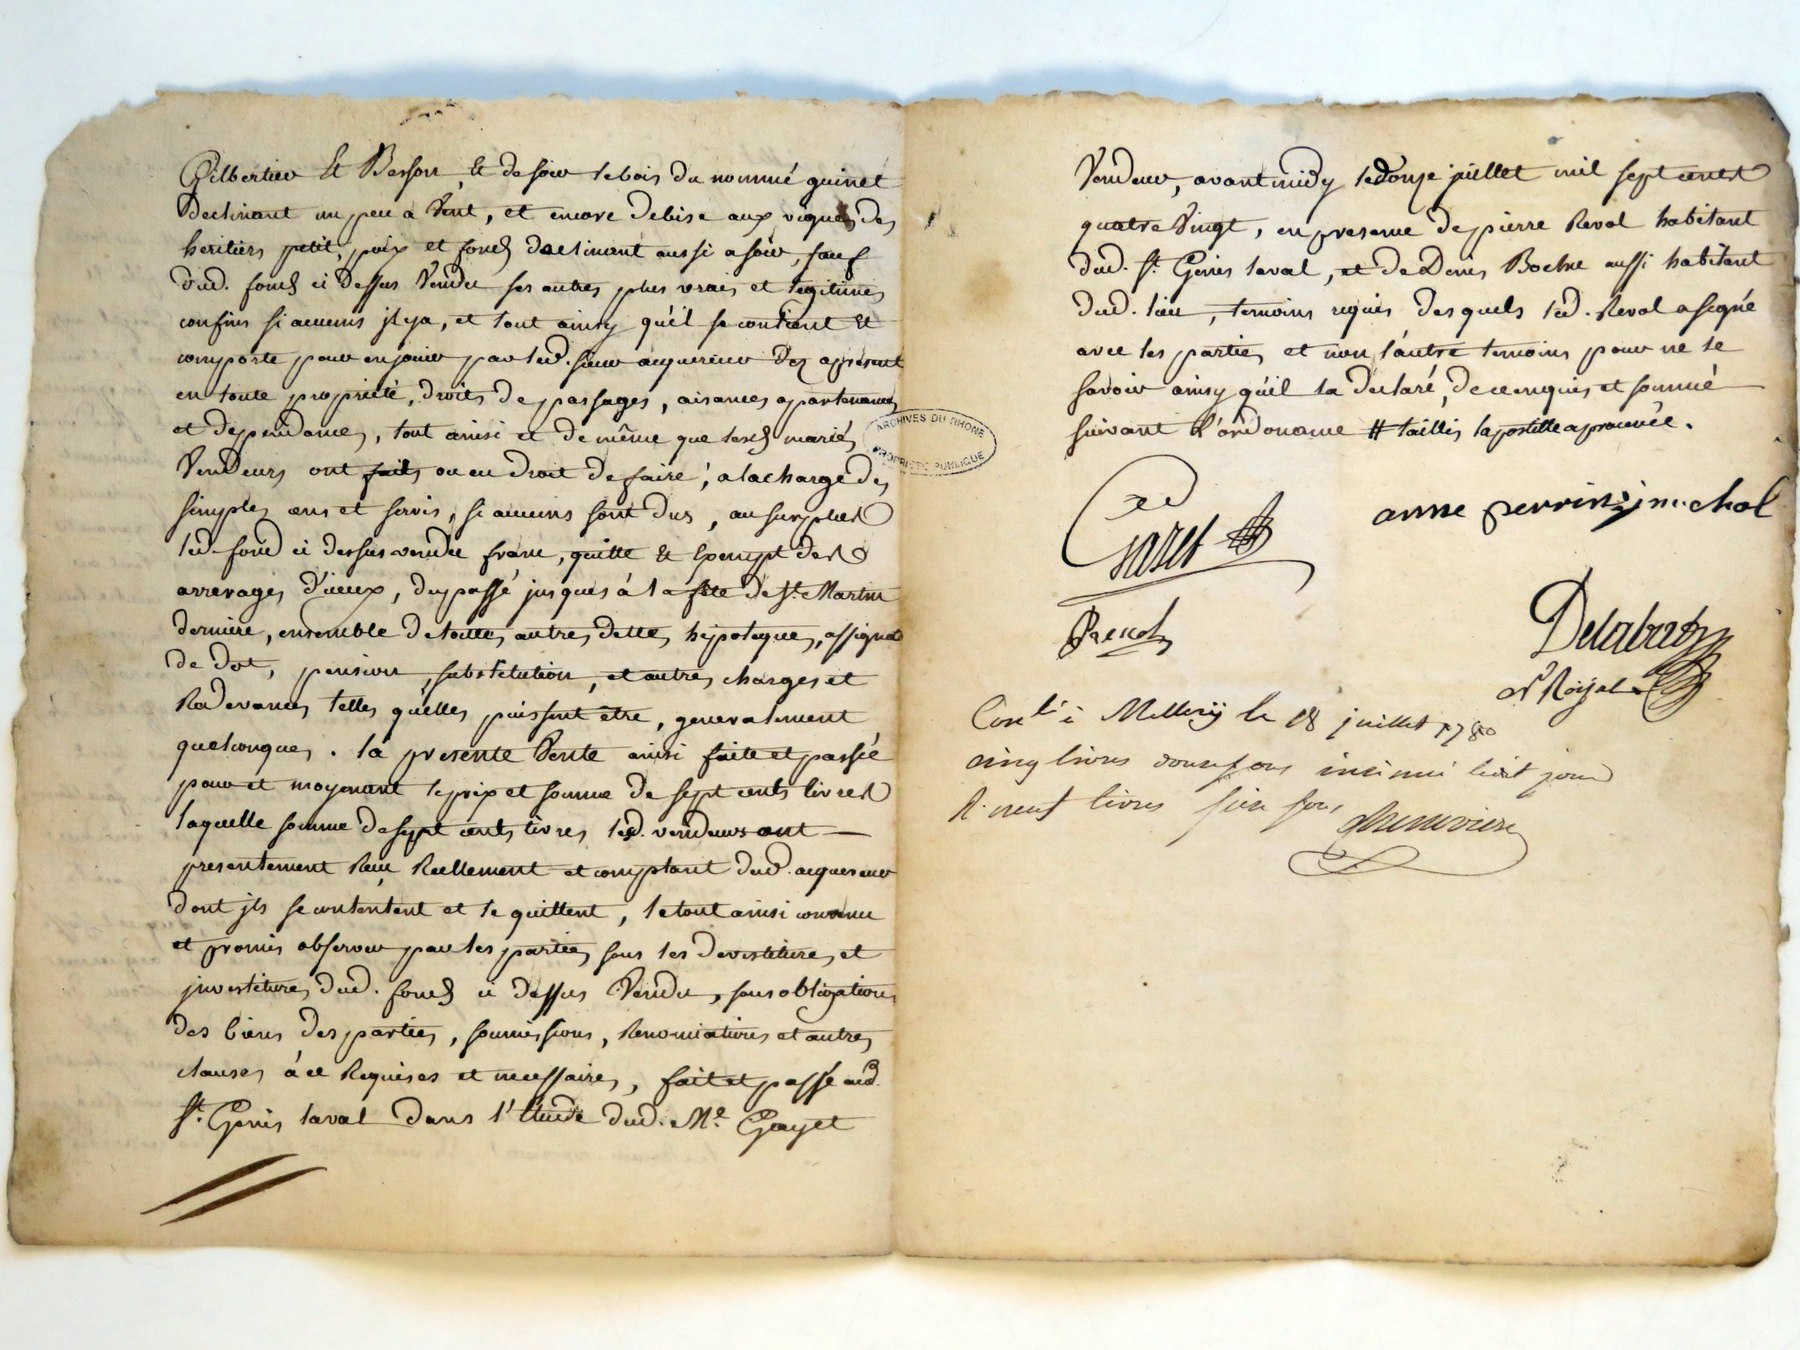 Gilbertier Et Besson, Et de soir le bois du nommé guinet
declinant un peu a Vent, et encore de bise aux vignes des
heritiers petit, puix et fonds declinant aussi a soir, sauf
dud. fonds ci dessus Vendu ses autres plus vrais et legitimes
confins si aucuns jl y a, et tout ainsy qu'il se contient Et
comporte pour en jouir par led. sieur acquereur Dez apresent
en toute proprieté, droits de passages, aisances apartenances
et dependances, tout ainsi et de même que lesds mariés
Vendeurs ont faits ou eu droit de faire, a la charge des
simples cens et servis, si aucuns sont dus, au surplus
led. fond ci dessus vendu franc, quitte Et Exempt des
arrerages d'iceux, du passé jusques á la fête de St. Martin
derniere, ensemble de toutes autres dettes, hipoteques, assignat
de dot, pension, substitution, et autres charges et
Redevances telles qu'elles puissent etre, generalement
quelconques. la presente Vente ainsi faite et passée
pour et moyenant le prix et somme de sept cents livres
laquelle somme de sept cents livres led. vendeurs ont
presentement Reçu Reellement et comptant dud. acquereur
dont jls se contentent et le quittent, le tout ainsi convenu
et promis observer par les parties sous les devestitures et
jnvestitures dud. fonds ci dessus Vendu, sous obligations
des biens des parties, soumissions, Renonciations et autres
clauses á ce Requises et necessaires, fait et passé aud.
St. Genis laval dans l'Etude dud. Me. Gayet
Vendeur, avant midy le douze juillet mil sept cents
quatre Vingt, en presence de pierre Reval habitant
dud. St. Genis laval, et de Denis Boche aussi habitant
dud. lieu, temoins requis desquels led. Reval a signé
avec les parties et non l'autre temoins pour ne le
savoir ainsy qu'il l'a declaré, de ce enquis et sommé
suivant l'ordonance # taillis, la postille aprouvée.
ARCHIVES DU RHONE
PROPRIETE PUBLIQUE
Gayet
anne perrin
Reval
Nre Royal
Conlé a Millery le 18 juillet 1780
cinq livres douze sous insinué ledit jour
R. neuf livres sous